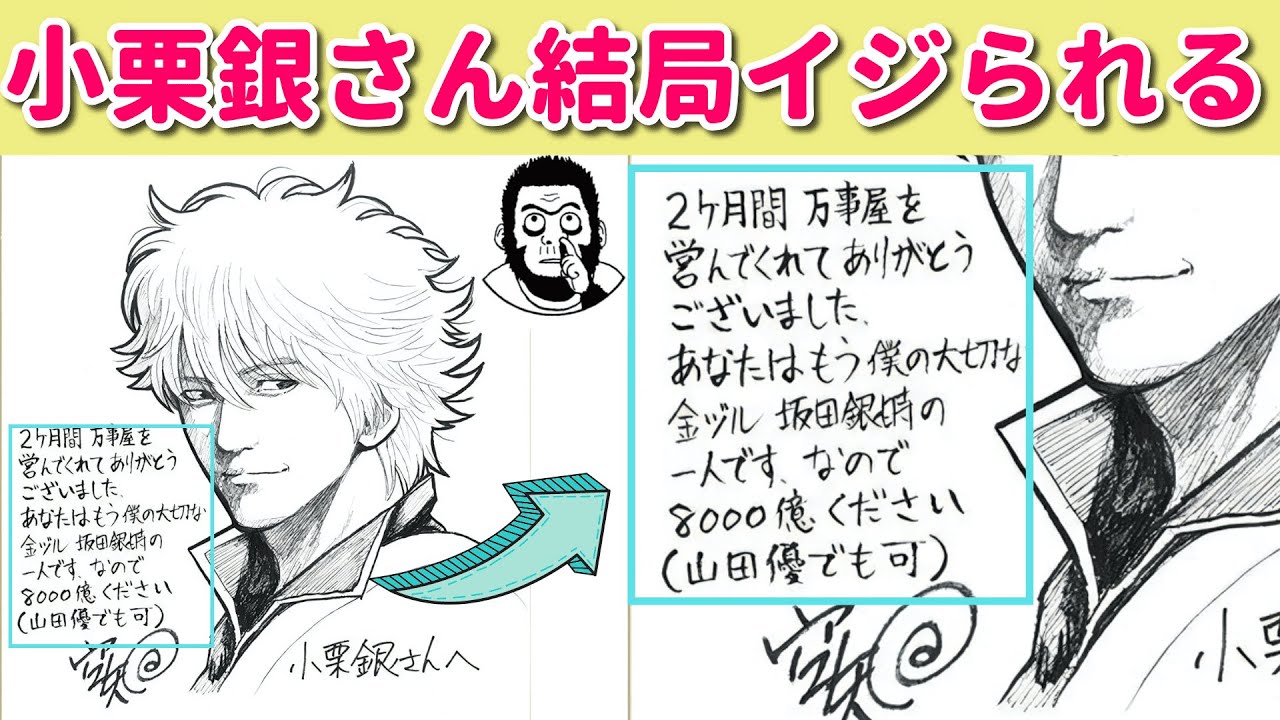 小栗銀さん結局イジられる
2ケ月間 万事屋を
営んでくれて ありがとう
ございました、
あなたはもう僕の大切な
金ヅル 坂田銀時の
一人です、なので
8000億ください
(山田優でも可)
小栗銀さんへ
2ケ月間 万事屋を
営んでくれて ありがとう
ございました、
あなたはもう僕の大切な
金ヅル 坂田銀時の
一人です、なので
8000億ください
(山田優でも可)
小